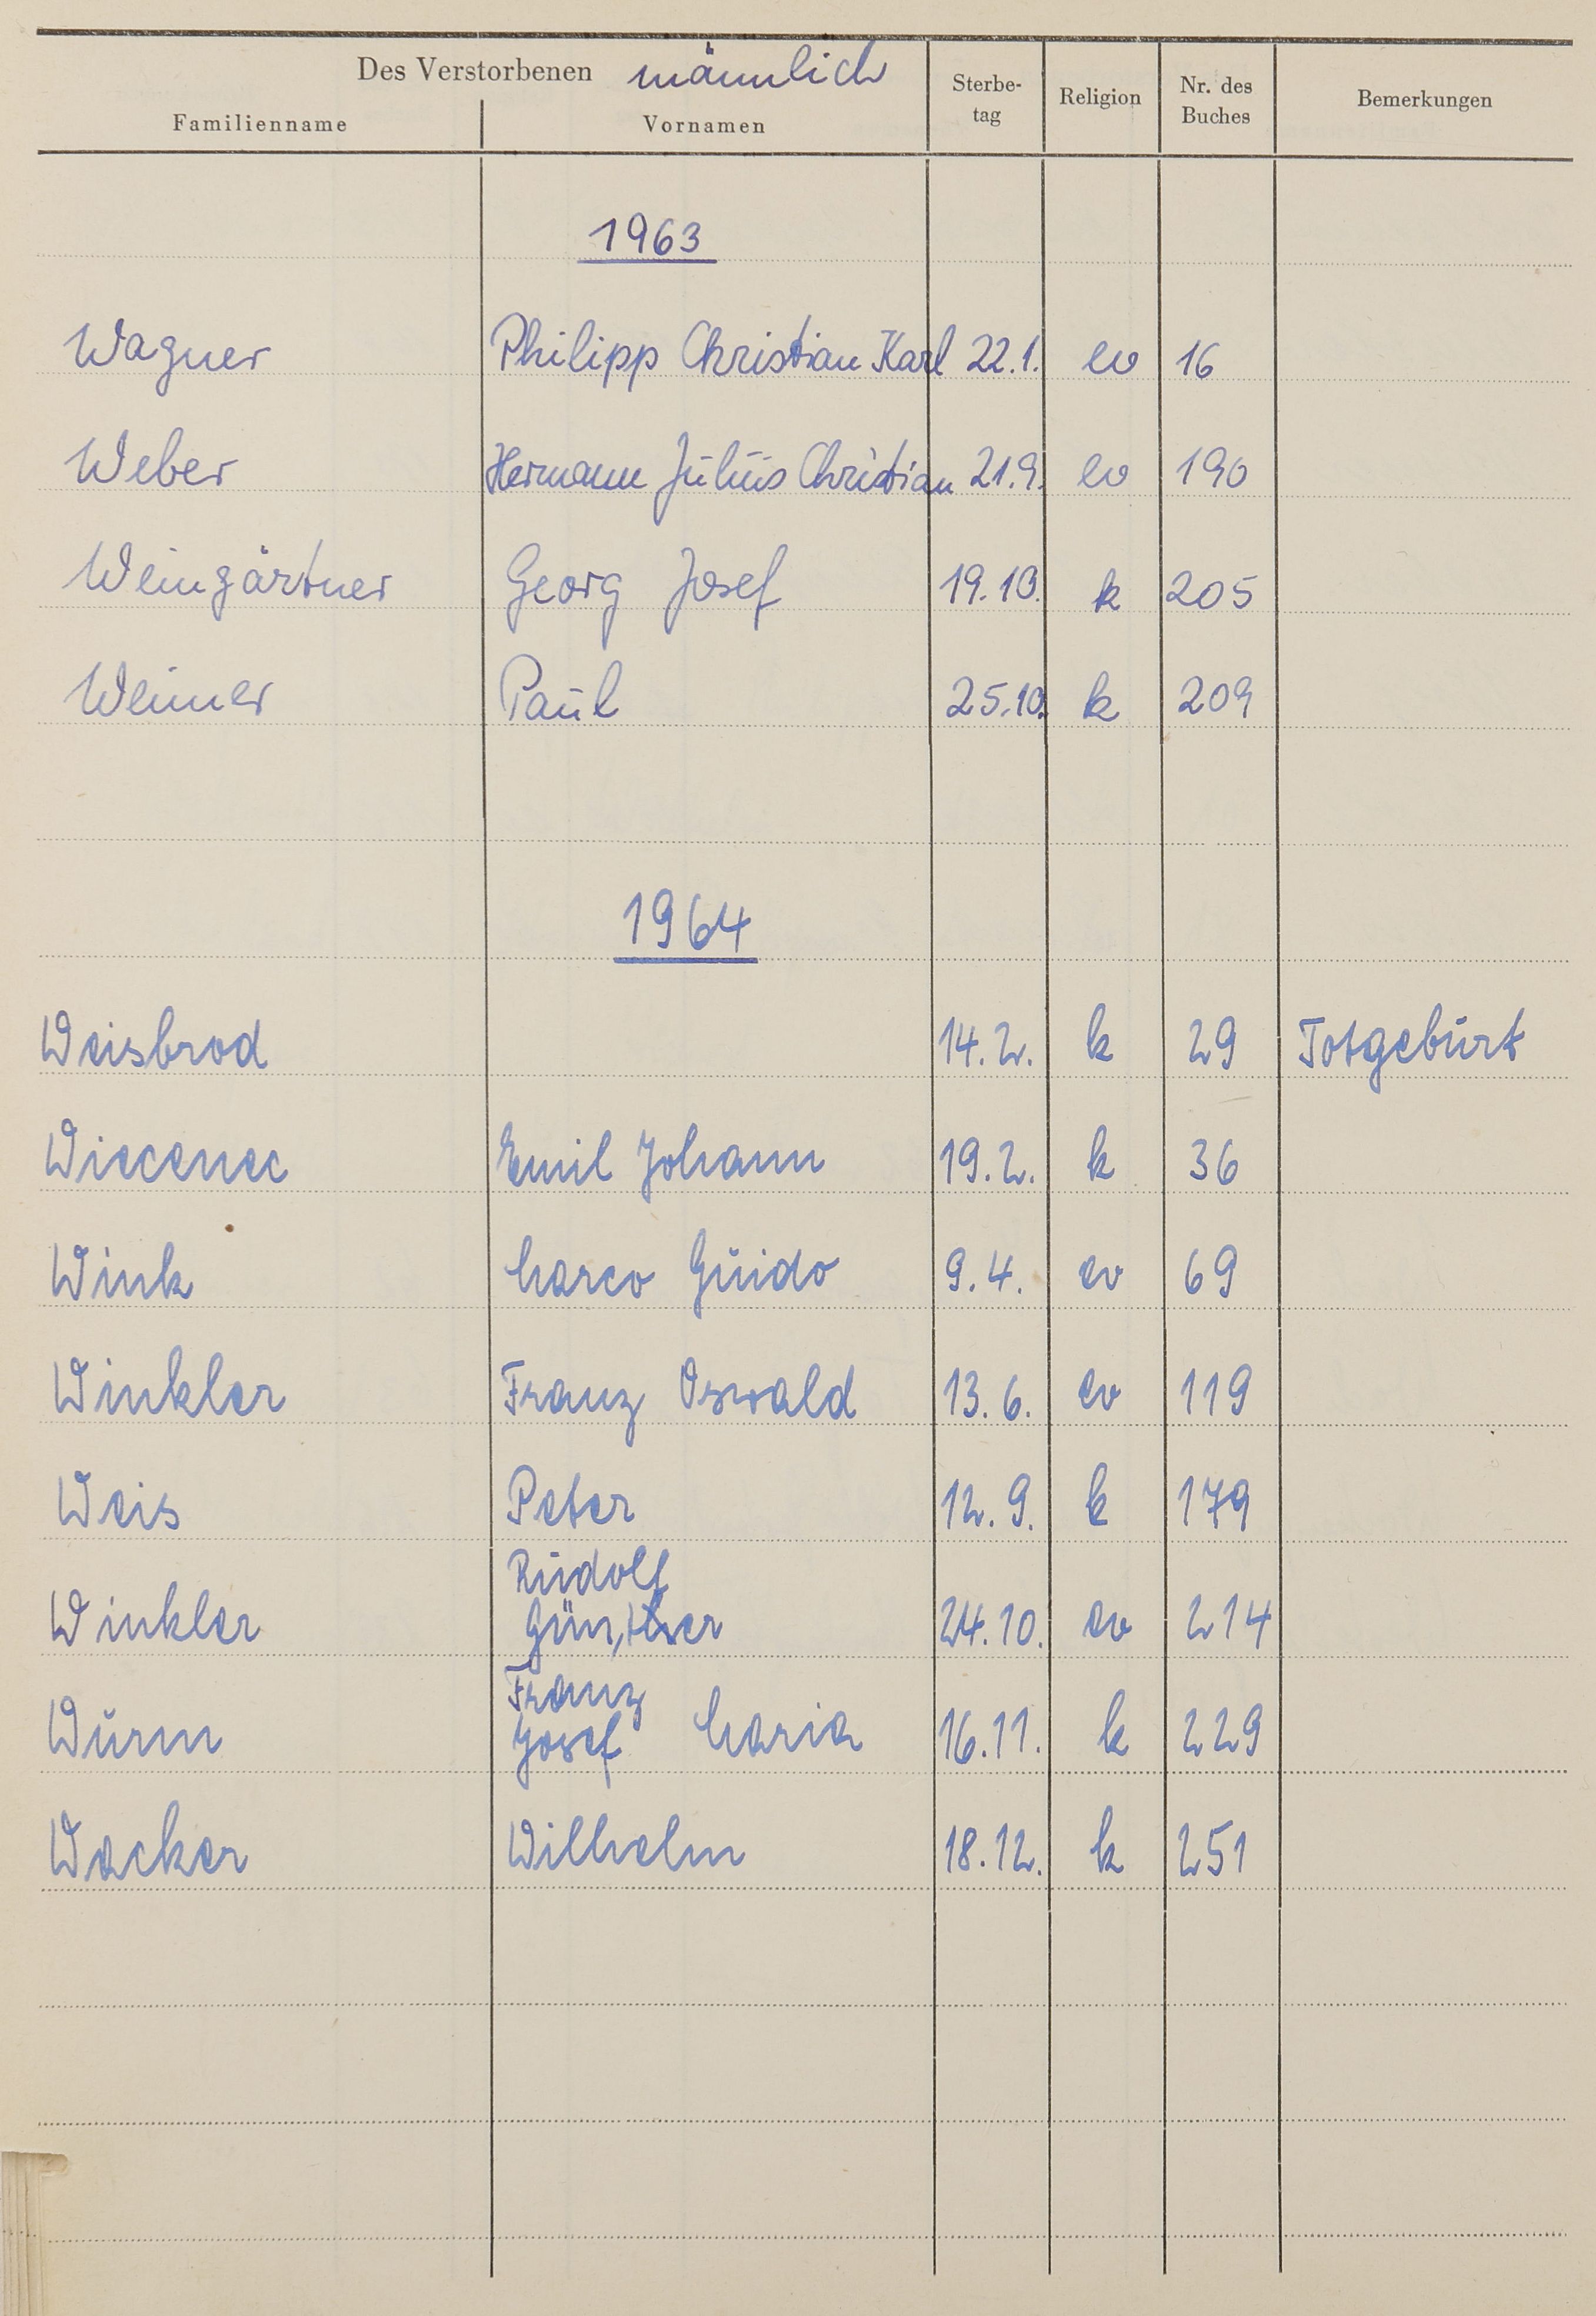 Des Verstorbenen männlich
Familienname Vornamen Sterbe-tag Religion Nr. des Buches Bemerkungen
1963
Wagner Philipp Christian Karl 22.1. ev 16
Weber Hermann Julius Christian 21.9. ev 190
Weingärtner Georg Josef 19.10. k 205
Weimer Paul 25.10. k 209
1964
Weisbrod 14.2. k 29 Totgeburt
Wiecenec Emil Johann 19.2. k 36
Wink Marco Guido 9.4. ev 69
Winkler Franz Oswald 13.6. ev 119
Weis Peter 12.9. k 179
Rudolf
Winkler Günther 24.10. ev 214
Franz
Wurm Josef Maria 16.11. k 229
Wacker Wilhelm 18.12. k 251